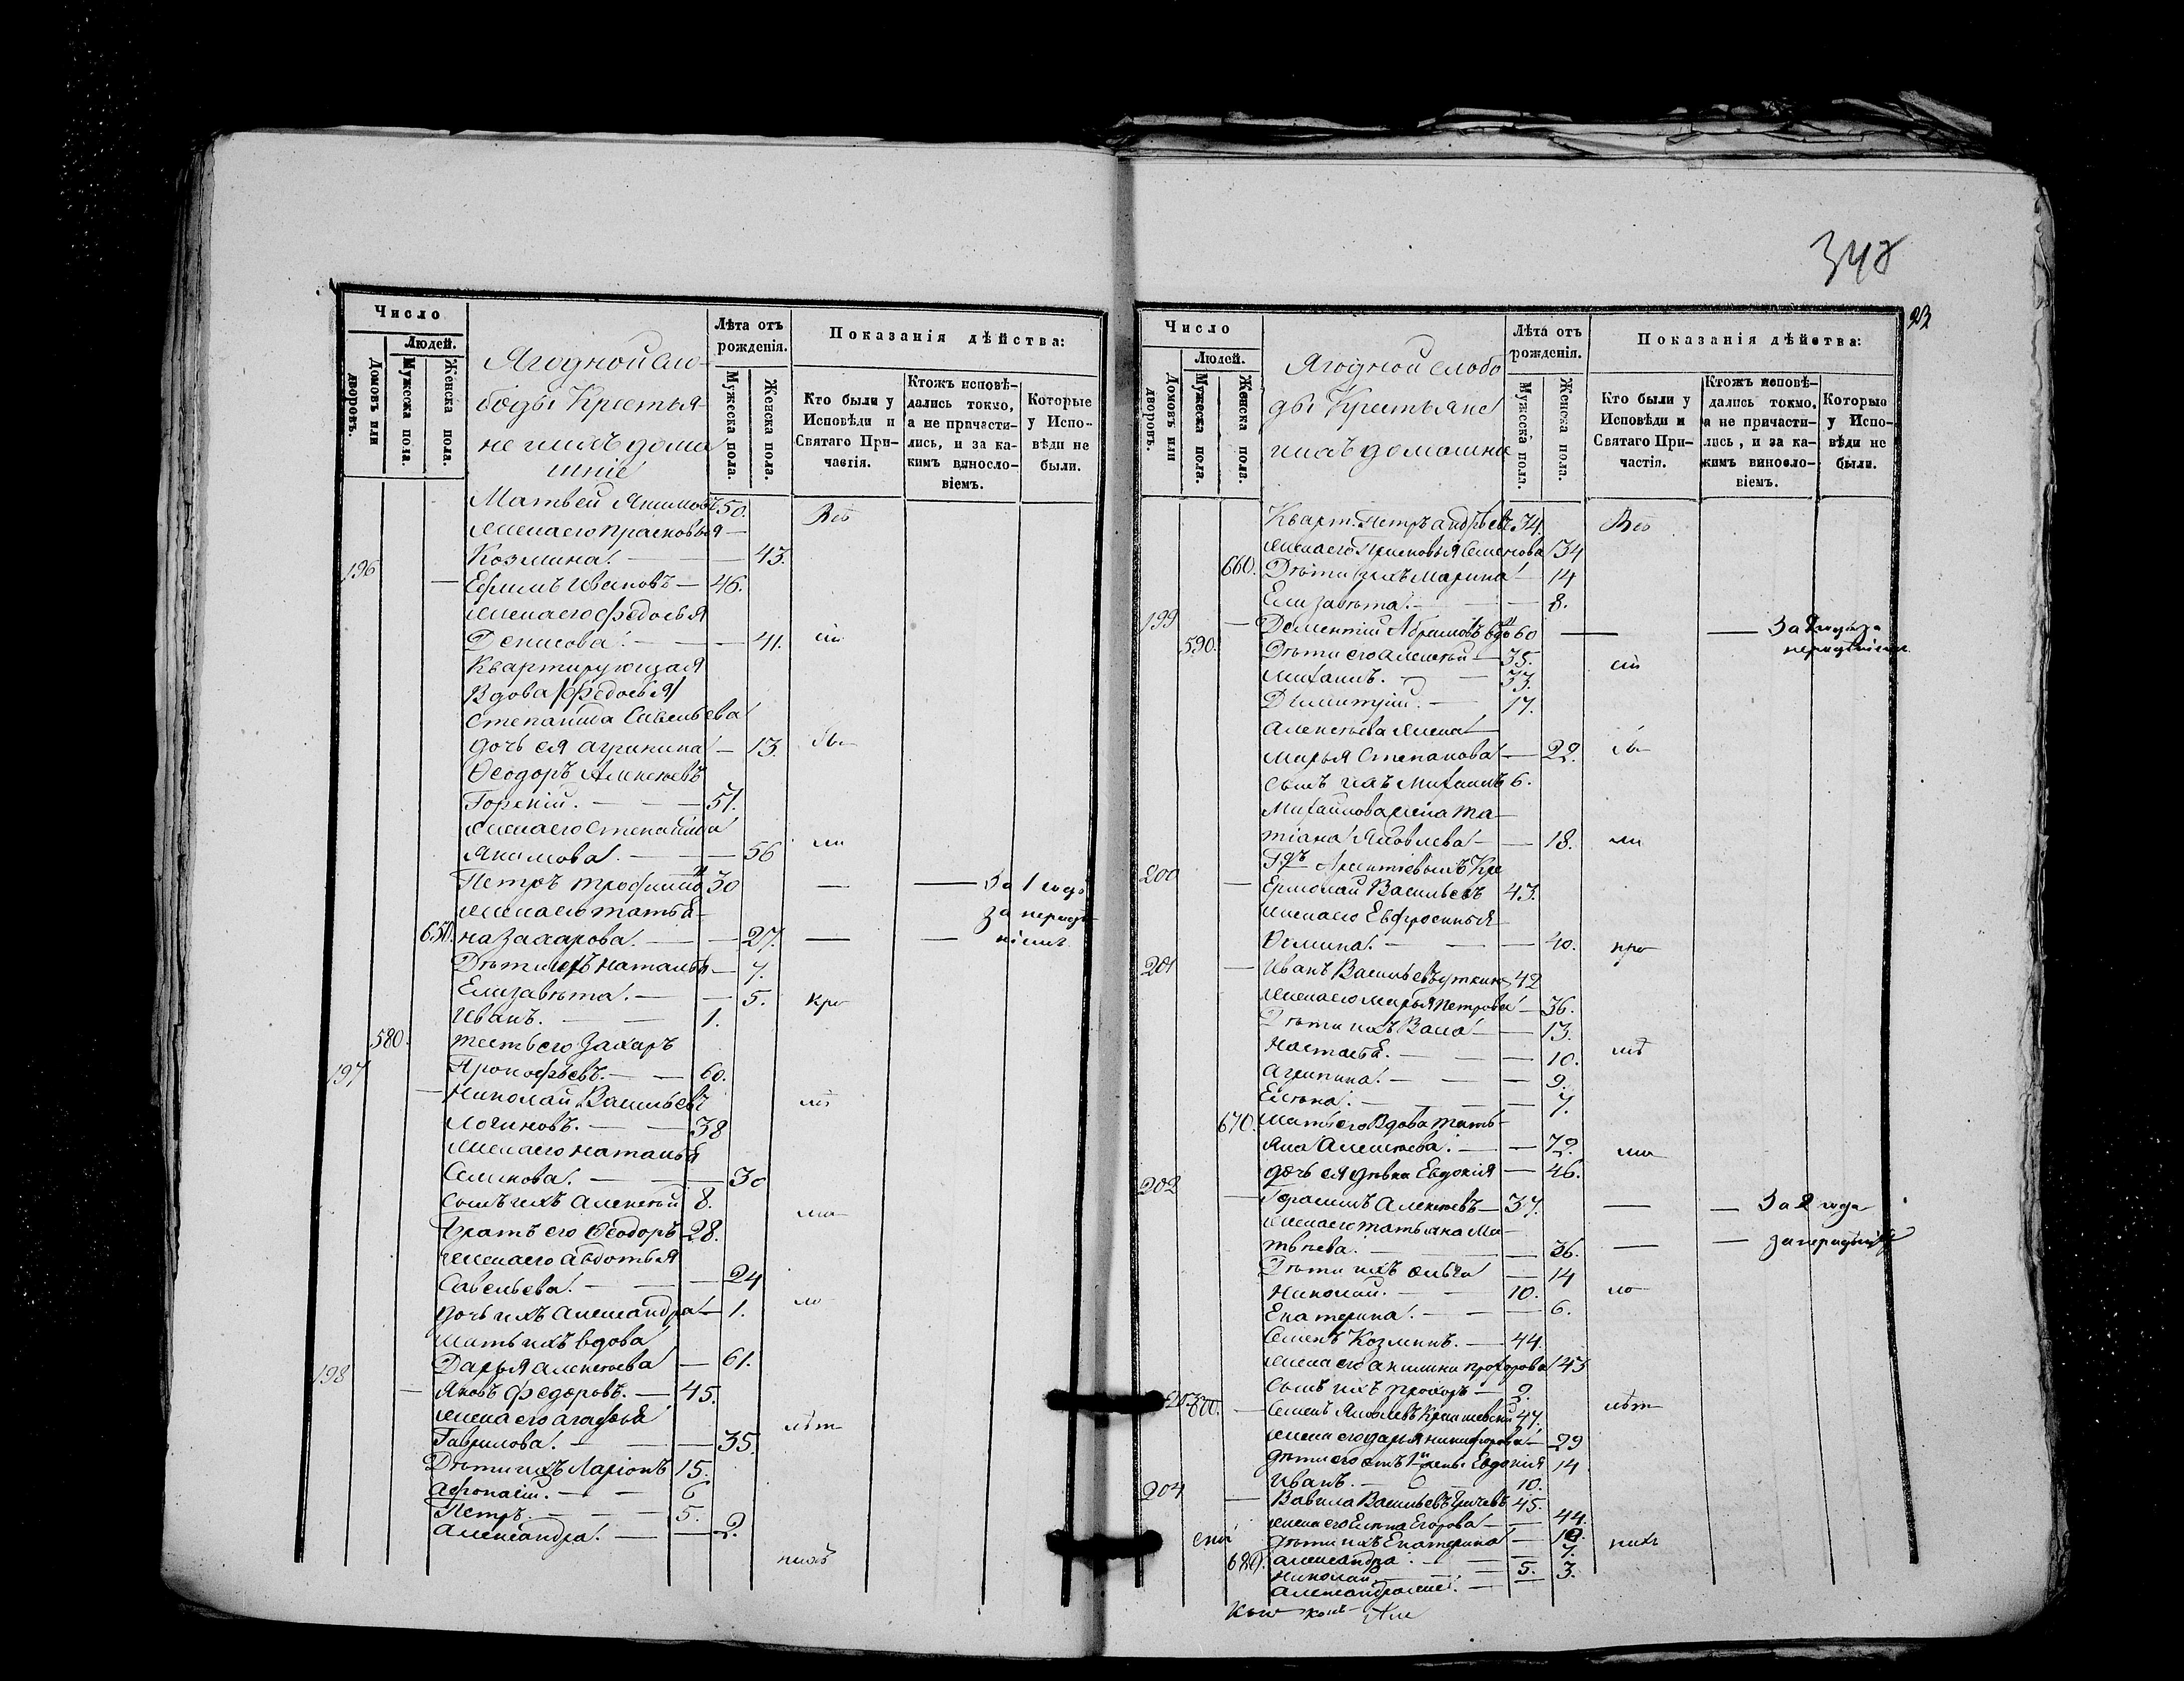 348
23
Число
Людей.
Домовъ или дворовъ.
Мужеска пола.
Женска пола.
Ягодной сло-
боды Крестья-
не и ихъ дома
шніе
Лѣта отъ рожденія.
Мужеска пола.
Женска пола.
Показанія дѣйства:
Кто были у Исповѣди и Святаго При-частія.
Ктожъ исповѣ-дались токмо, а не причасти-лись, и за ка-кимъ винословіемъ.
Которые у Испо-вѣди не были.
Матвей Якимовъ 50. Всѣ
жена его Прасковья —
Козмина. — 43.
196 — Ефимъ Ивановъ — 46.
жена его Федосья
Денисова. — 41. сіи
Квартирующая
Вдова /Федосья/
Степанида Савельева
дочь ея Агрипина — 13. бы-
Ѳеодоръ Алексѣевъ
Горскій. — 51.
жена его Степанида
Якимова. — 56 ли
Петръ Трофимов 30 — — За 1 годъ
жена его Татья- за нерадѣ-
650. на Захарова. — 27. — — ніемъ
Дѣти ихъ Наталья — 7.
Елизавета. — 5. кро
Иванъ. — 1.
580. тесть его Захаръ
Прокофьевъ. — 60.
197 — Николай Васильевъ мѣ
Логиновъ. — 38
жена его Наталья
Семенова. — 30
сынъ ихъ Алексѣй 8.
братъ его Ѳеодоръ 28. ма
жена его Авдотья
Савельева. — 24
дочь ихъ Александра — 1. ло
мать ихъ вдова
Дарья Алексѣева — 61.
198 — Яковъ Федоровъ. — 45.
жена его Агафья лѣт
Гаврилова. — 35.
Дѣти ихъ Ларіонъ 15.
Афонасій. — 6
Петръ. — 5.
Александра. — 2.
нихъ
Число
Людей.
Домовъ или дворовъ.
Мужеска пола.
Женска пола.
Ягодной слобо
ды Крестьяне
и ихъ домашніе
Лѣта отъ рожденія.
Мужеска пола.
Женска пола.
Показанія дѣйства:
Кто были у Исповѣди и Святаго При-частія.
Ктожъ исповѣ-дались токмо, а не причасти-лись, и за ка-кимъ винословіемъ.
Которые у Испо-вѣди не были.
Кварт. Петръ Андреевъ 34. Всѣ
жена его Прасковья Семенова 34
660. Дѣти ихъ Марина — 14
Елизавета. — 8.
199 — Дементій Абрамовъ вдо 60 — — За 2 года за
590. Дѣти его Алексѣй — 35. сіи нерадѣніем
Михаилъ. — 33.
Димитрій. — 17.
Алексѣева жена
Марья Степанова — 22. бы-
сынъ ихъ Михаилъ 6.
Михайлова жена Та-
тіана Яковлева — 18. ли
Гдъ Арситіевымъ Кре
200 — Ермолай Васильевъ 43.
жена его Евфросинья
Ѳомина. — 40. кро
201 — Иванъ Васильевъ Уткинъ 42
жена его Марья Петрова — 36.
Дѣти ихъ Васса — 13.
Настасья. — 10. мѣ
Агрипина. — 9.
Елена. — 7.
670. Мать его Вдова Тать-
яна Алексѣева. — 72. ма
дочь ея дѣвка Евдокія — 46.
202 — Герасимъ Алексѣевъ — 37. — — За 2 года
жена его Татьяна Ма-
твѣева. — 36. — — за нерадѣніем
Дѣти ихъ Ольга — 14
Николай. — 10. ло
Екатерина. — 6.
Семенъ Козминъ. — 44.
жена его Акилина Прохорова 43
сынъ ихъ Прохоръ — 2.
203 600. — Семенъ Яковлевъ 47. лѣт
жена его Дарья Никифорова — 29
дѣти его отъ 1й жены Евдокія 14
Иванъ. — 10.
204 — Вавила Васильевъ 45.
жена его Елена Егорова — 44.
дѣти ихъ Екатерина — 10. нихъ
680. Александра. — 7.
Николай. — 5.
3.